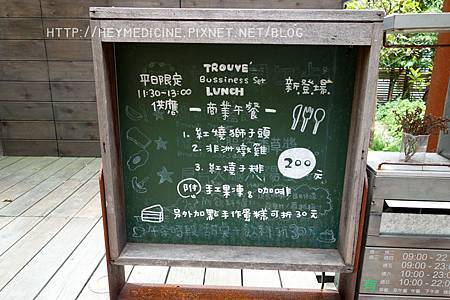 HTTP://HEYMEDICINE.PIXNET.NET/BLOG
TROUVÉ
Bussiness Set
LUNCH
平日限定
11:30-13:00
供應
新登場
商業午餐
1. 紅燒獅子頭
2. 非洲燉雞
3. 紅燒子排
200元
附 手工果凍 & 咖啡
另外加點手作蛋糕可折30元
09:00 - 22
09:00 - 22
10:00 - 23
10:00 - 22